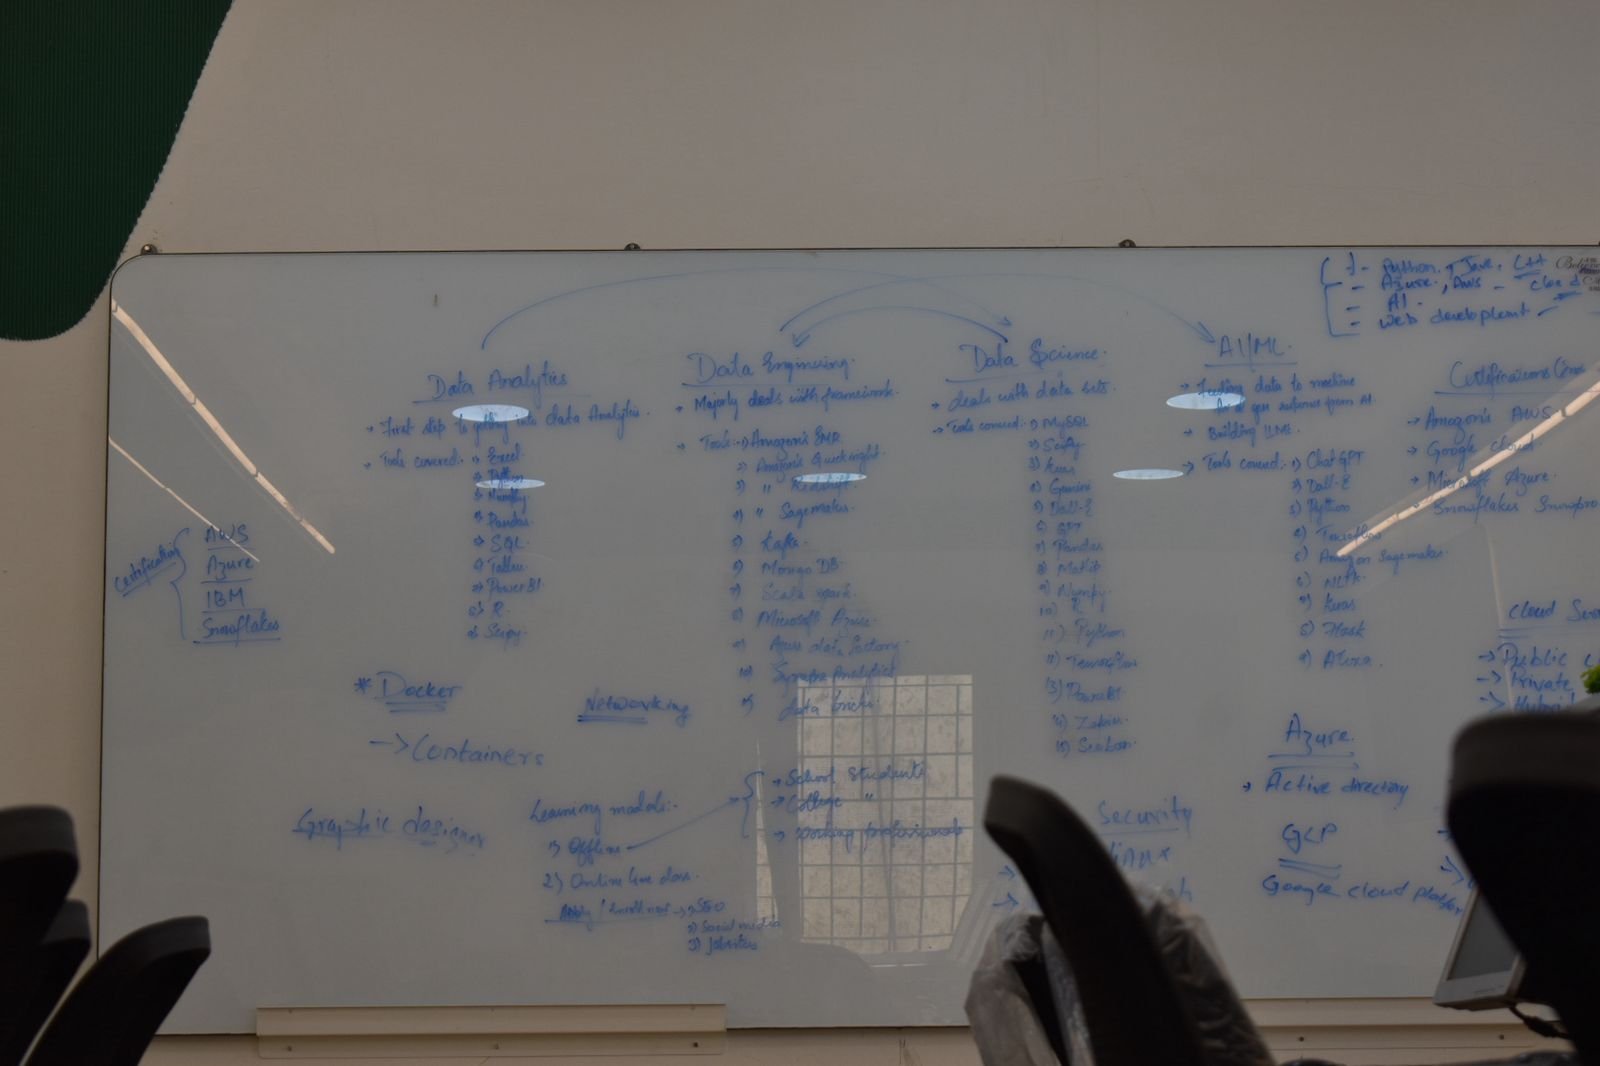 Python, Java, C++
Azure, AWS - cloud
AI
Web development
Data Analytics
→ First step to getting into data Analytics.
→ Tools covered:- 1) Excel
Python
Numpy
Pandas
SQL
PowerBI
R
Scipy
Data Engineering
→ Majorly deals with framework.
→ Tools:- 1) Amazon's EMR
2) Amazon's Quicksight
3) " Redshift
4) " Sagemaker
5) Kafka
6) MongoDB
7) Scala spark
8) Microsoft Azure
9) Azure data factory
10) Synapse Analytics
11) data bricks
Data Science
→ deals with data sets.
→ Tools covered:- 1) MySQL
2) Scipy
3) Keras
4) Gemini
5) Dall-E
6) GPT
7) Pandas
8) Matlib
9) Numpy
10) R
11) Python
12) Tensorflow
13) PowerBI
15) Seabon
AI/ML
→ Feeding data to machine
→ Building LLMS.
→ Tools covered:- 1) ChatGPT
2) Dall-E
3) Python
4) Tensorflow
5) Amazon Sagemaker
6) NLTK
7) Keras
8) Flask
→ Amazon's AWS
→ Google cloud
→ Microsoft Azure
Snowflakes Snowpro
Certification
AWS
Azure
IBM
Snowflakes
cloud
→ Public
→ Private
→ Hybrid
* Docker
→ Containers
Networking
Graphic designer
Learning models:-
1) Offline
2) Online live class.
Apply / Enroll now → 1) SEO
2) Social media
3) Jobsites
→ School Students
→ College "
→ Working professionals
Azure
→ Active directory
GCP
Google cloud platform
Security